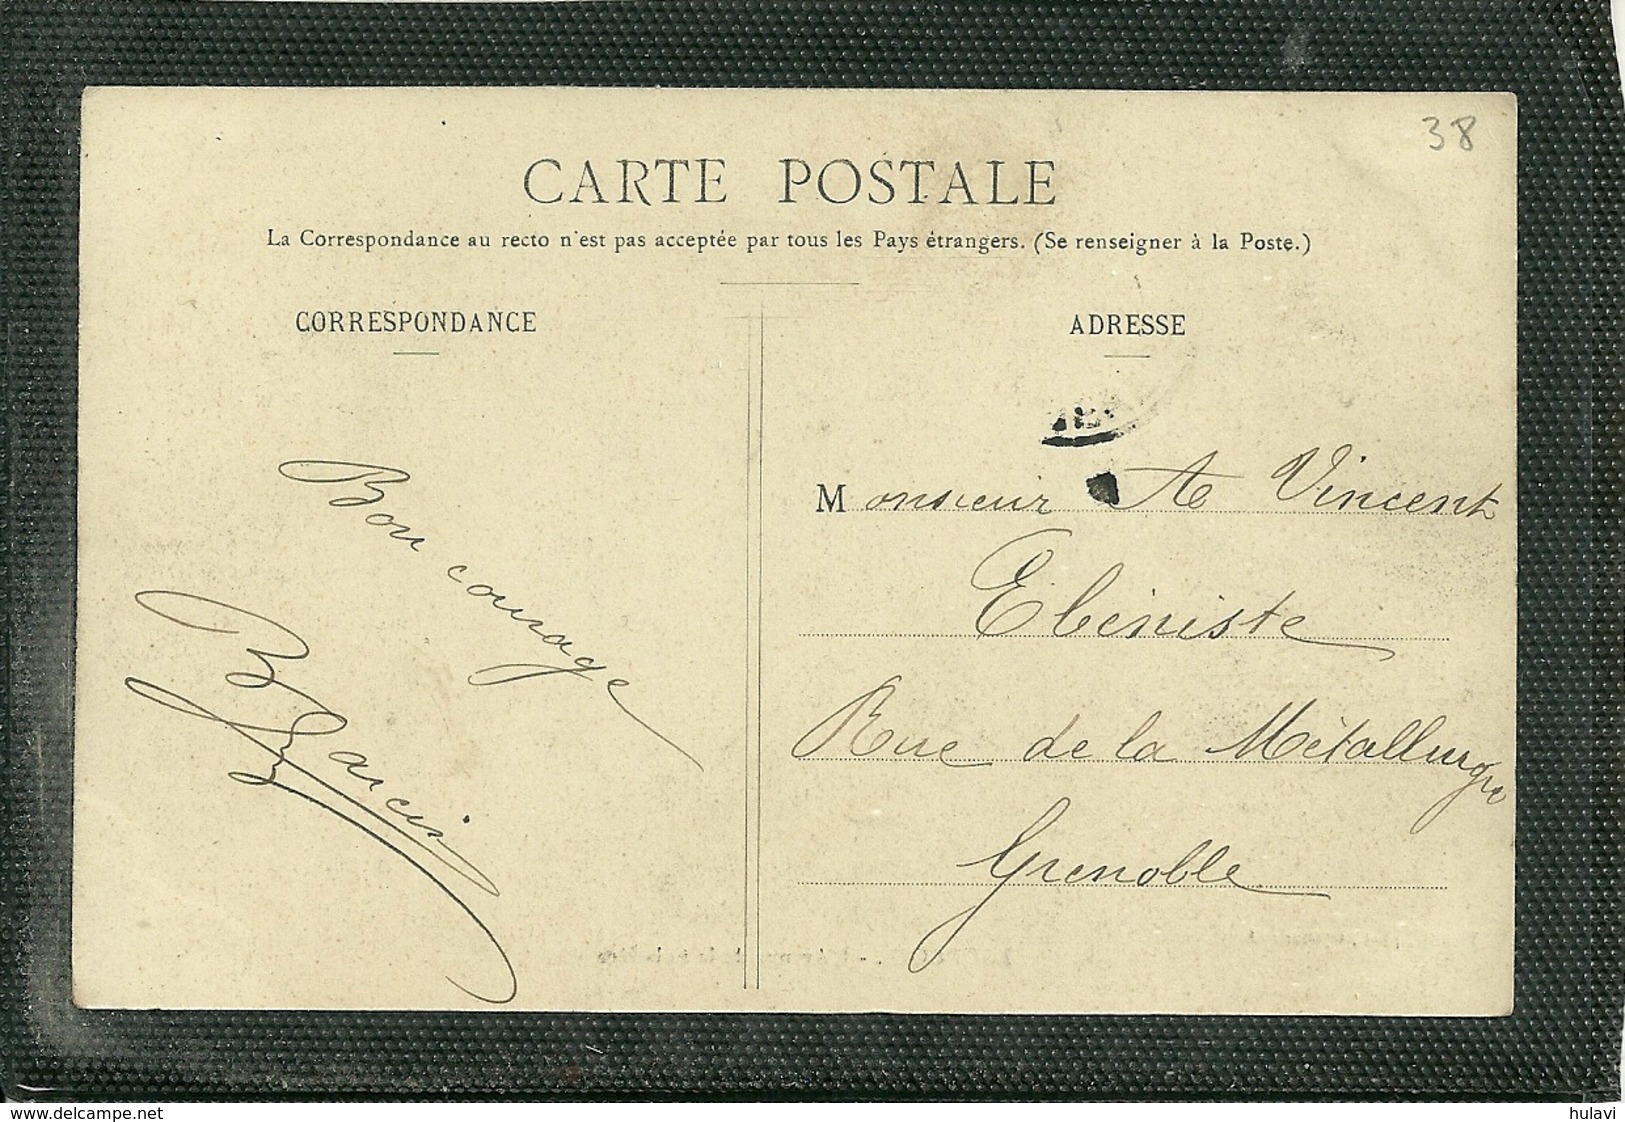 38
CARTE POSTALE
La Correspondance au recto n'est pas acceptée par tous les Pays étrangers. (Se renseigner à la Poste.)
CORRESPONDANCE
Bon courage
ADRESSE
Monsieur A Vincent
Ebéniste
Rue de la Métallurgie
Grenoble
www.delcampe.net
hulavi